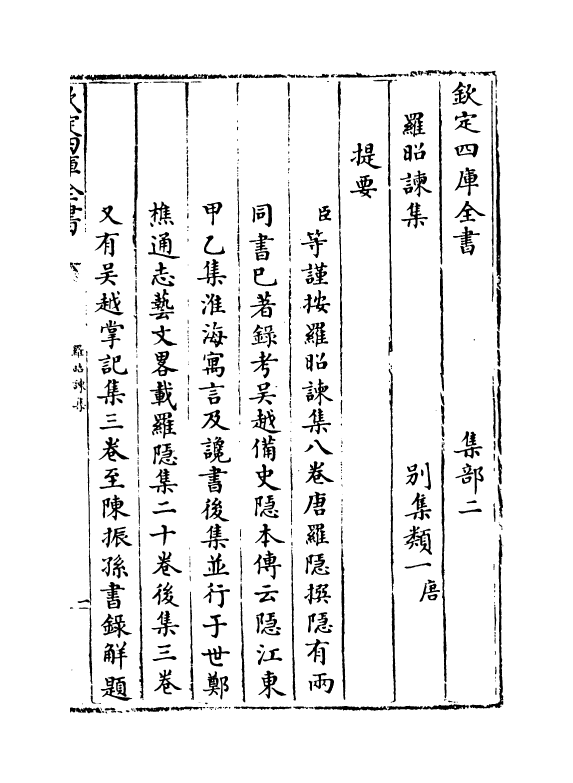 欽定四庫全書　集部二
羅昭諫集　別集類一唐
提要
臣等謹按羅昭諫集八卷唐羅隱撰隱有兩
同書已著錄考吳越備史隱本傳云隱江東
甲乙集淮海寓言及讒書後集並行于世鄭
樵通志藝文畧載羅隱集二十卷後集三卷
又有吳越掌記集三卷至陳振孫書錄解題
欽定四庫全書
羅昭諫集